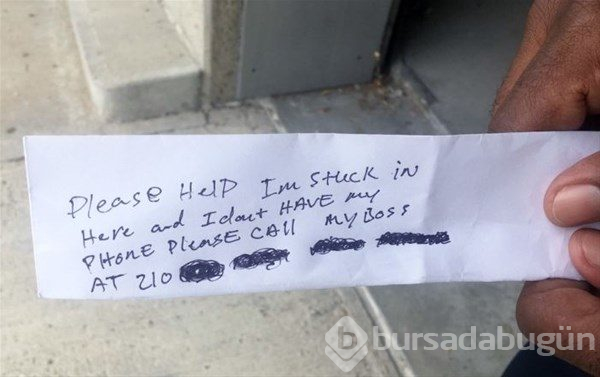 Please Help Im stuck in
Here and I dont HAVE my
PHONE Please CALL MY BOSS
AT 210
b bursadabugün